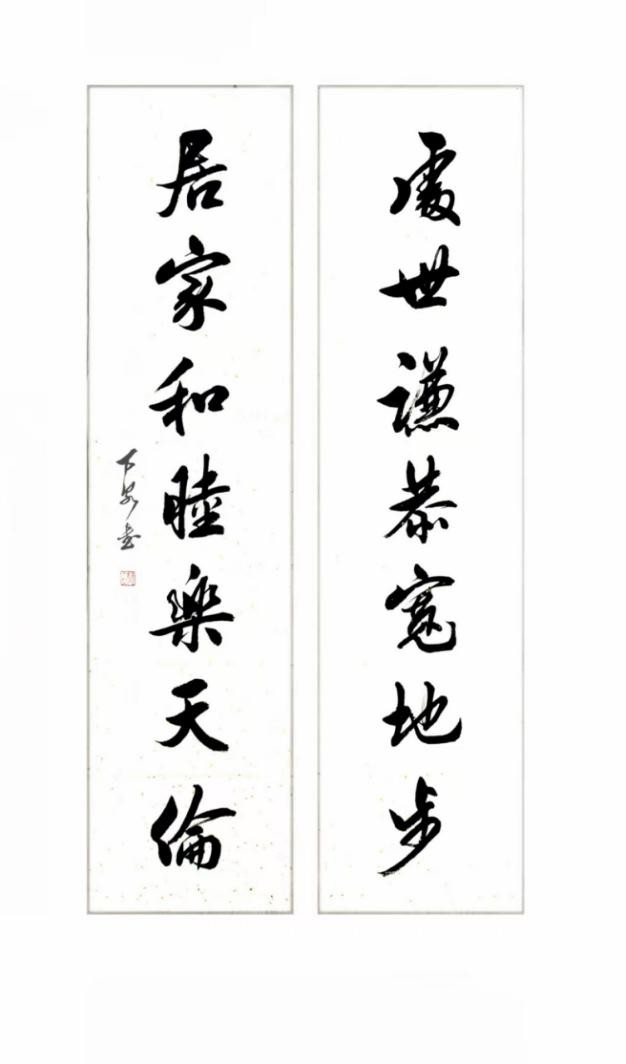 處世謙恭寬地步
居家和睦樂天倫